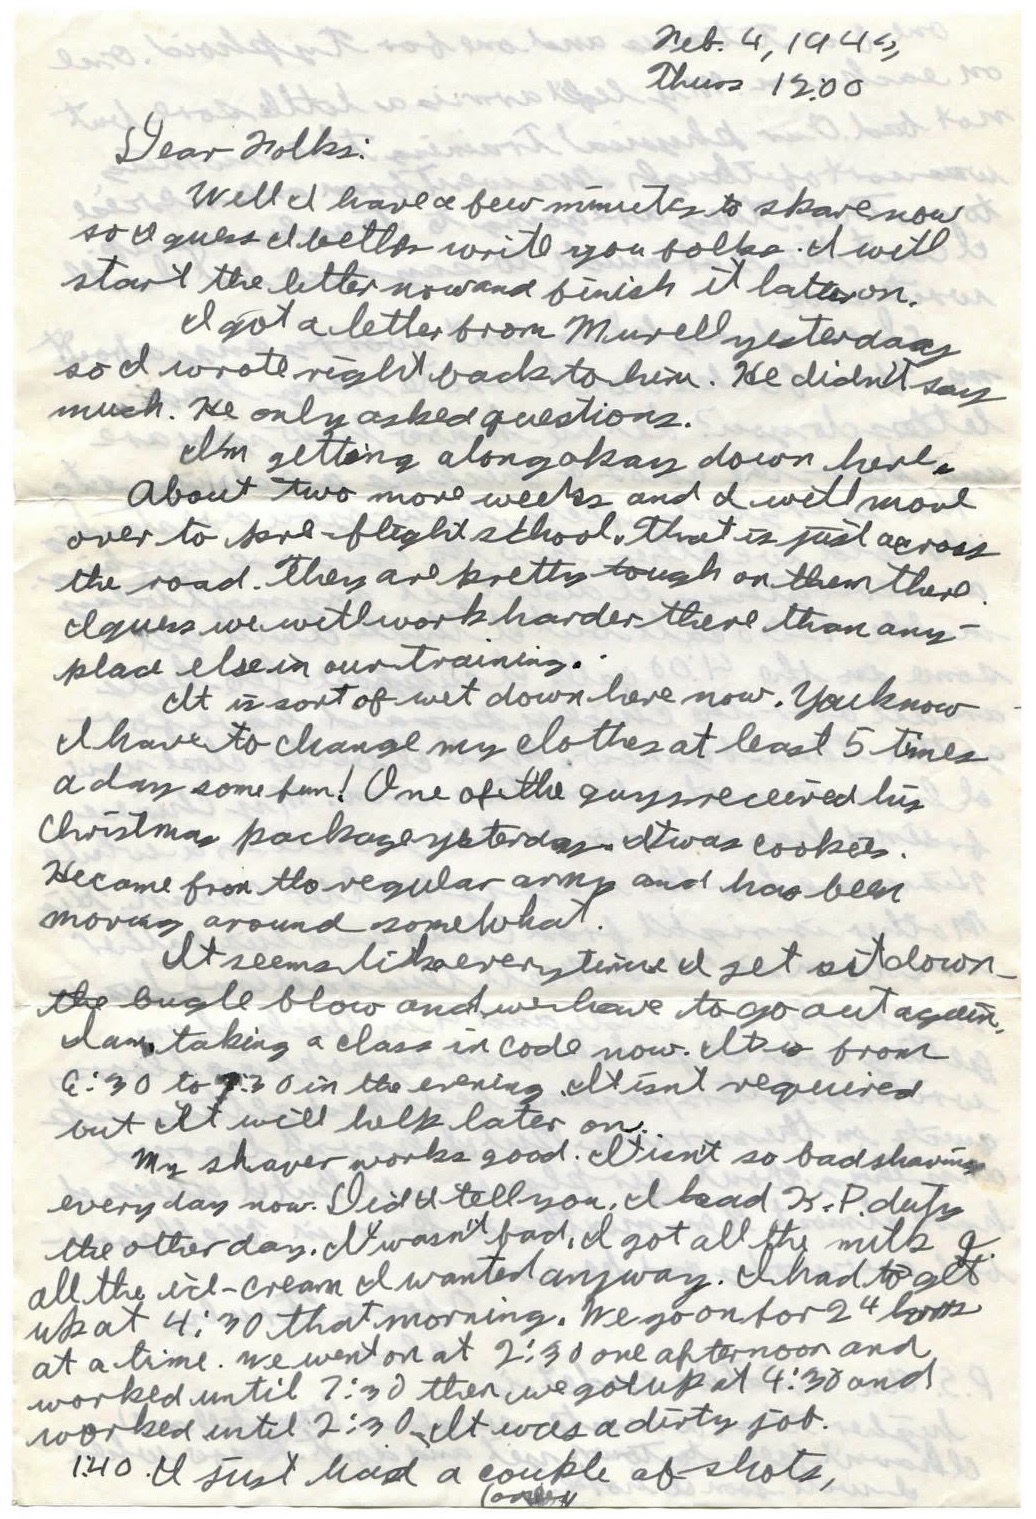 Feb. 4, 1943,
Thurs 12:00
Dear Folks:
Well I have a few minutes to spare now
so I guess I better write you folks. I will
start the letter now and finish it later on.
I got a letter from Murell yesterday
so I wrote right back to him. He didn't say
much. He only asked questions.
I'm getting along okay down here.
About two more weeks and I will move
over to pre-flight school. That is just across
the road. They are pretty tough on them there.
I guess we will work harder there than any-
place else in our training.
It is sort of wet down here now. You know
I have to change my clothes at least 5 times
a day some fun! One of the guys received his
Christmas package yesterday. It was cookies.
He came from the regular army and has been
moving around somewhat.
It seems like everytime I get sit down
the bugle blow and we have to go out again.
I am taking a class in code now. It is from
6:30 to 7:30 in the evening. It isn't required
but It will help later on.
My shaver works good. It isn't so bad shaving
every day now. Did I tell you, I had K.P. duty
the other day. It wasn't bad, I got all the milk &
all the ice-cream I wanted anyway. I had to get
up at 4:30 that morning. We go on for 24 hours
at a time. We went on at 2:30 one afternoon and
worked until 7:30 then we got up at 4:30 and
worked until 2:30. It was a dirty job.
1:40. I just had a couple of shots,